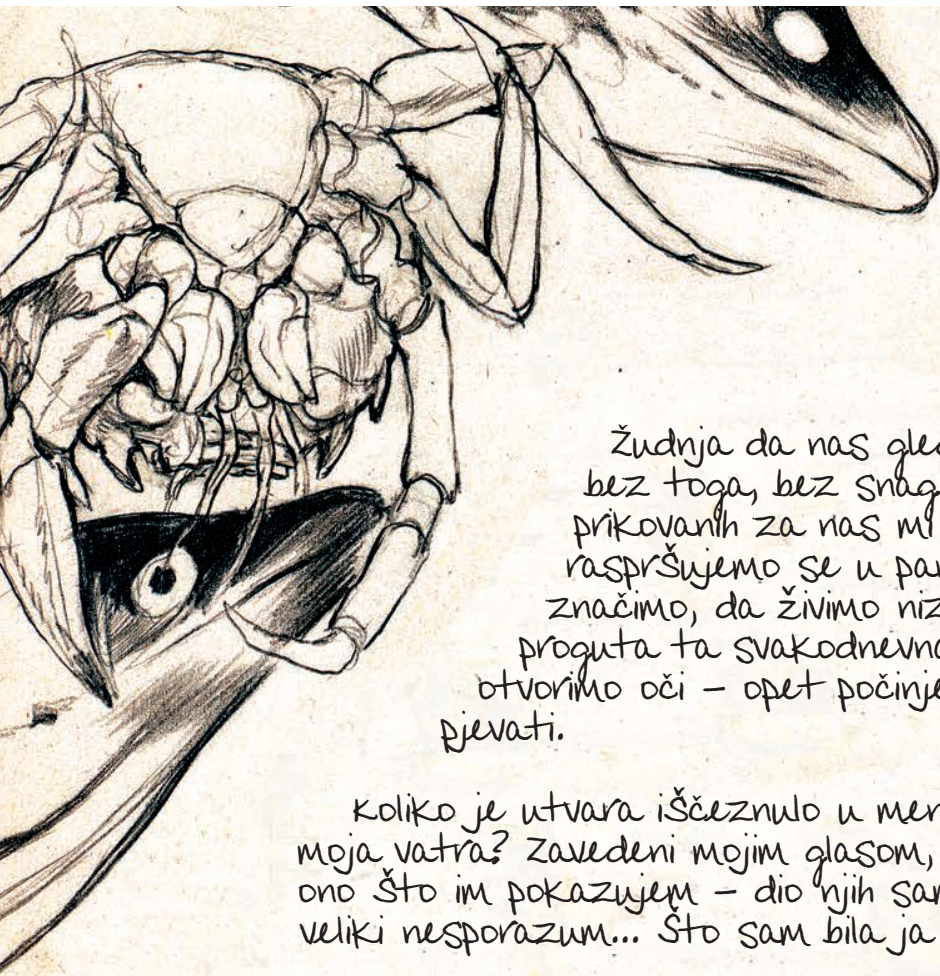 Žudnja da nas gled
bez toga, bez snag
prikovanih za nas mi
raspršujemo se u par
značimo, da živimo niz
proguta ta svakodnevno
otvorimo oči – opet počinje
pjevati.
Koliko je utvara iščeznulo u men
moja vatra? Zavedeni mojim glasom,
ono što im pokazujem – dio njih sam
veliki nesporazum... Što sam bila ja